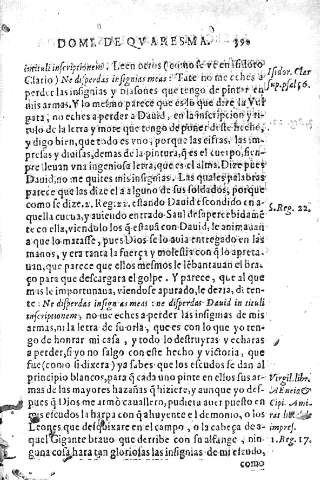 DOMI. DE QVARESMA. 39
in tituli inscriptionem. Leen otros (como se ve en Isidoro
Clario) Ne disperdas insignias meas: Tate no me eches a
perder las insignias y blasones que tengo de pintar en
mis armas. Y lo mesmo parece que es lo que dize la Vul
gata; no eches a perder a Dauid, en la inscripcion y ti-
tulo de la letra y mote que tengo de poner deste hecho,
y digo bien, que todo es vno, porque las cifras, las im-
presas y diuisas, demas de la pintura, q̃ es el cuerpo, siem-
pre lleuan vna ingeniosa letra, que es el alma. Dize pues
Dauid, no me quites mis insignias. Las quales palabras
parece que las dize el a alguno de sus soldados, porque
como se dize. 2. Reg. 22. estando Dauid escondido en a-
quella cueua, y auiendo entrado Saul desapercebidamẽ
te en ella, viendolo los q̃ estauã con Dauid, le animauan
a que lo matasse, pues Dios se lo auia entregado en las
manos, y era tanta la fuerça y molestia con q̃ lo apreta-
uan, que parece que ellos mesmos le lebantauan el bra-
ço para que descargara el golpe. Y parece, que al que
mas le importunaua, viendose apurado, le dezia, di ten-
te: Ne disperdas insignias meas: ne disperdas Dauid in tituli
inscriptionem, no me eches a perder las insignias de mis
armas, ni la letra de su orla, que es con lo que yo ten-
go de honrar mi casa, y todo lo destruyras y echaras
a perder, si yo no salgo con este hecho y victoria, que
fue (como si dixera) ya sabes que los escudos se dan al
principio blancos, para q̃ cada vno pinte en ellos sus ar-
mas de las mayores hazañas q̃ hiziere, y aunque yo des-
pues q̃ Dios me armò cauallero, pudiera auer puesto en
mis escudos la harpa con q̃ ahuyente el demonio, o los
Leones que desquixare en el campo, o la cabeça de a-
quel Gigante brauo que derribe con su alfange, nin-
guna cosa hara tan gloriosas las insignias de mi escudo,
como
Isidor. Clar
sup. psal 56.
S. Reg. 22.
Virgil. lib.
1. Reg. 17.